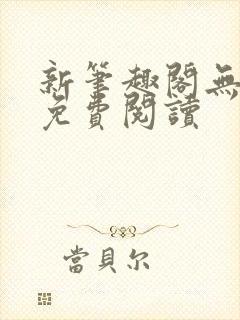 新筆趣閣無
免費閱讀
當貝尔